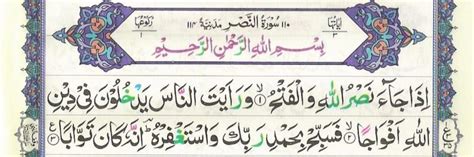 اٰیَاتُهَا ۳ ۱۱۰ سُوْرَةُ النَّصْرِ مَدَنِیَّةٌ ۱۱۴ رُكُوْعُهَا ۱
بِسْمِ اللهِ الرَّحْمٰنِ الرَّحِیْمِ
اِذَا جَآءَ نَصْرُ اللهِ وَالْفَتْحُ ۙ﴿۱﴾ وَرَاَیْتَ النَّاسَ یَدْخُلُوْنَ فِیْ دِیْنِ
اللهِ اَفْوَاجًا ۙ﴿۲﴾ فَسَبِّحْ بِحَمْدِ رَبِّكَ وَاسْتَغْفِرْهُ ؕ اِنَّهٗ كَانَ تَوَّابًا ﴿۳﴾